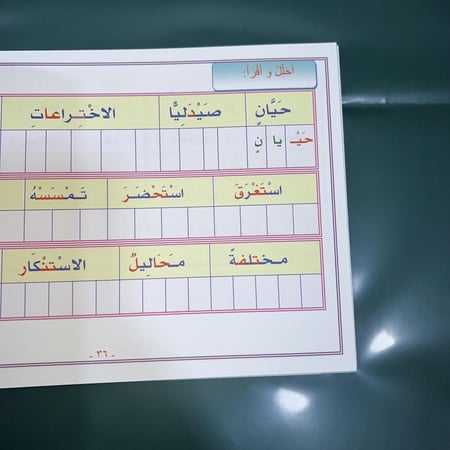 أحلل و أقرأ:
حَيَّانٍ صَيْدَلِيًّا الاخْتِراعاتِ
حَيْـ يا نٍ
اسْتَغْرَقَ اسْتَحْضَرَ تَمْسَسْهُ
مختلفةً مَحَاليلُ الاسْتنْكَار
- ٣٦ -